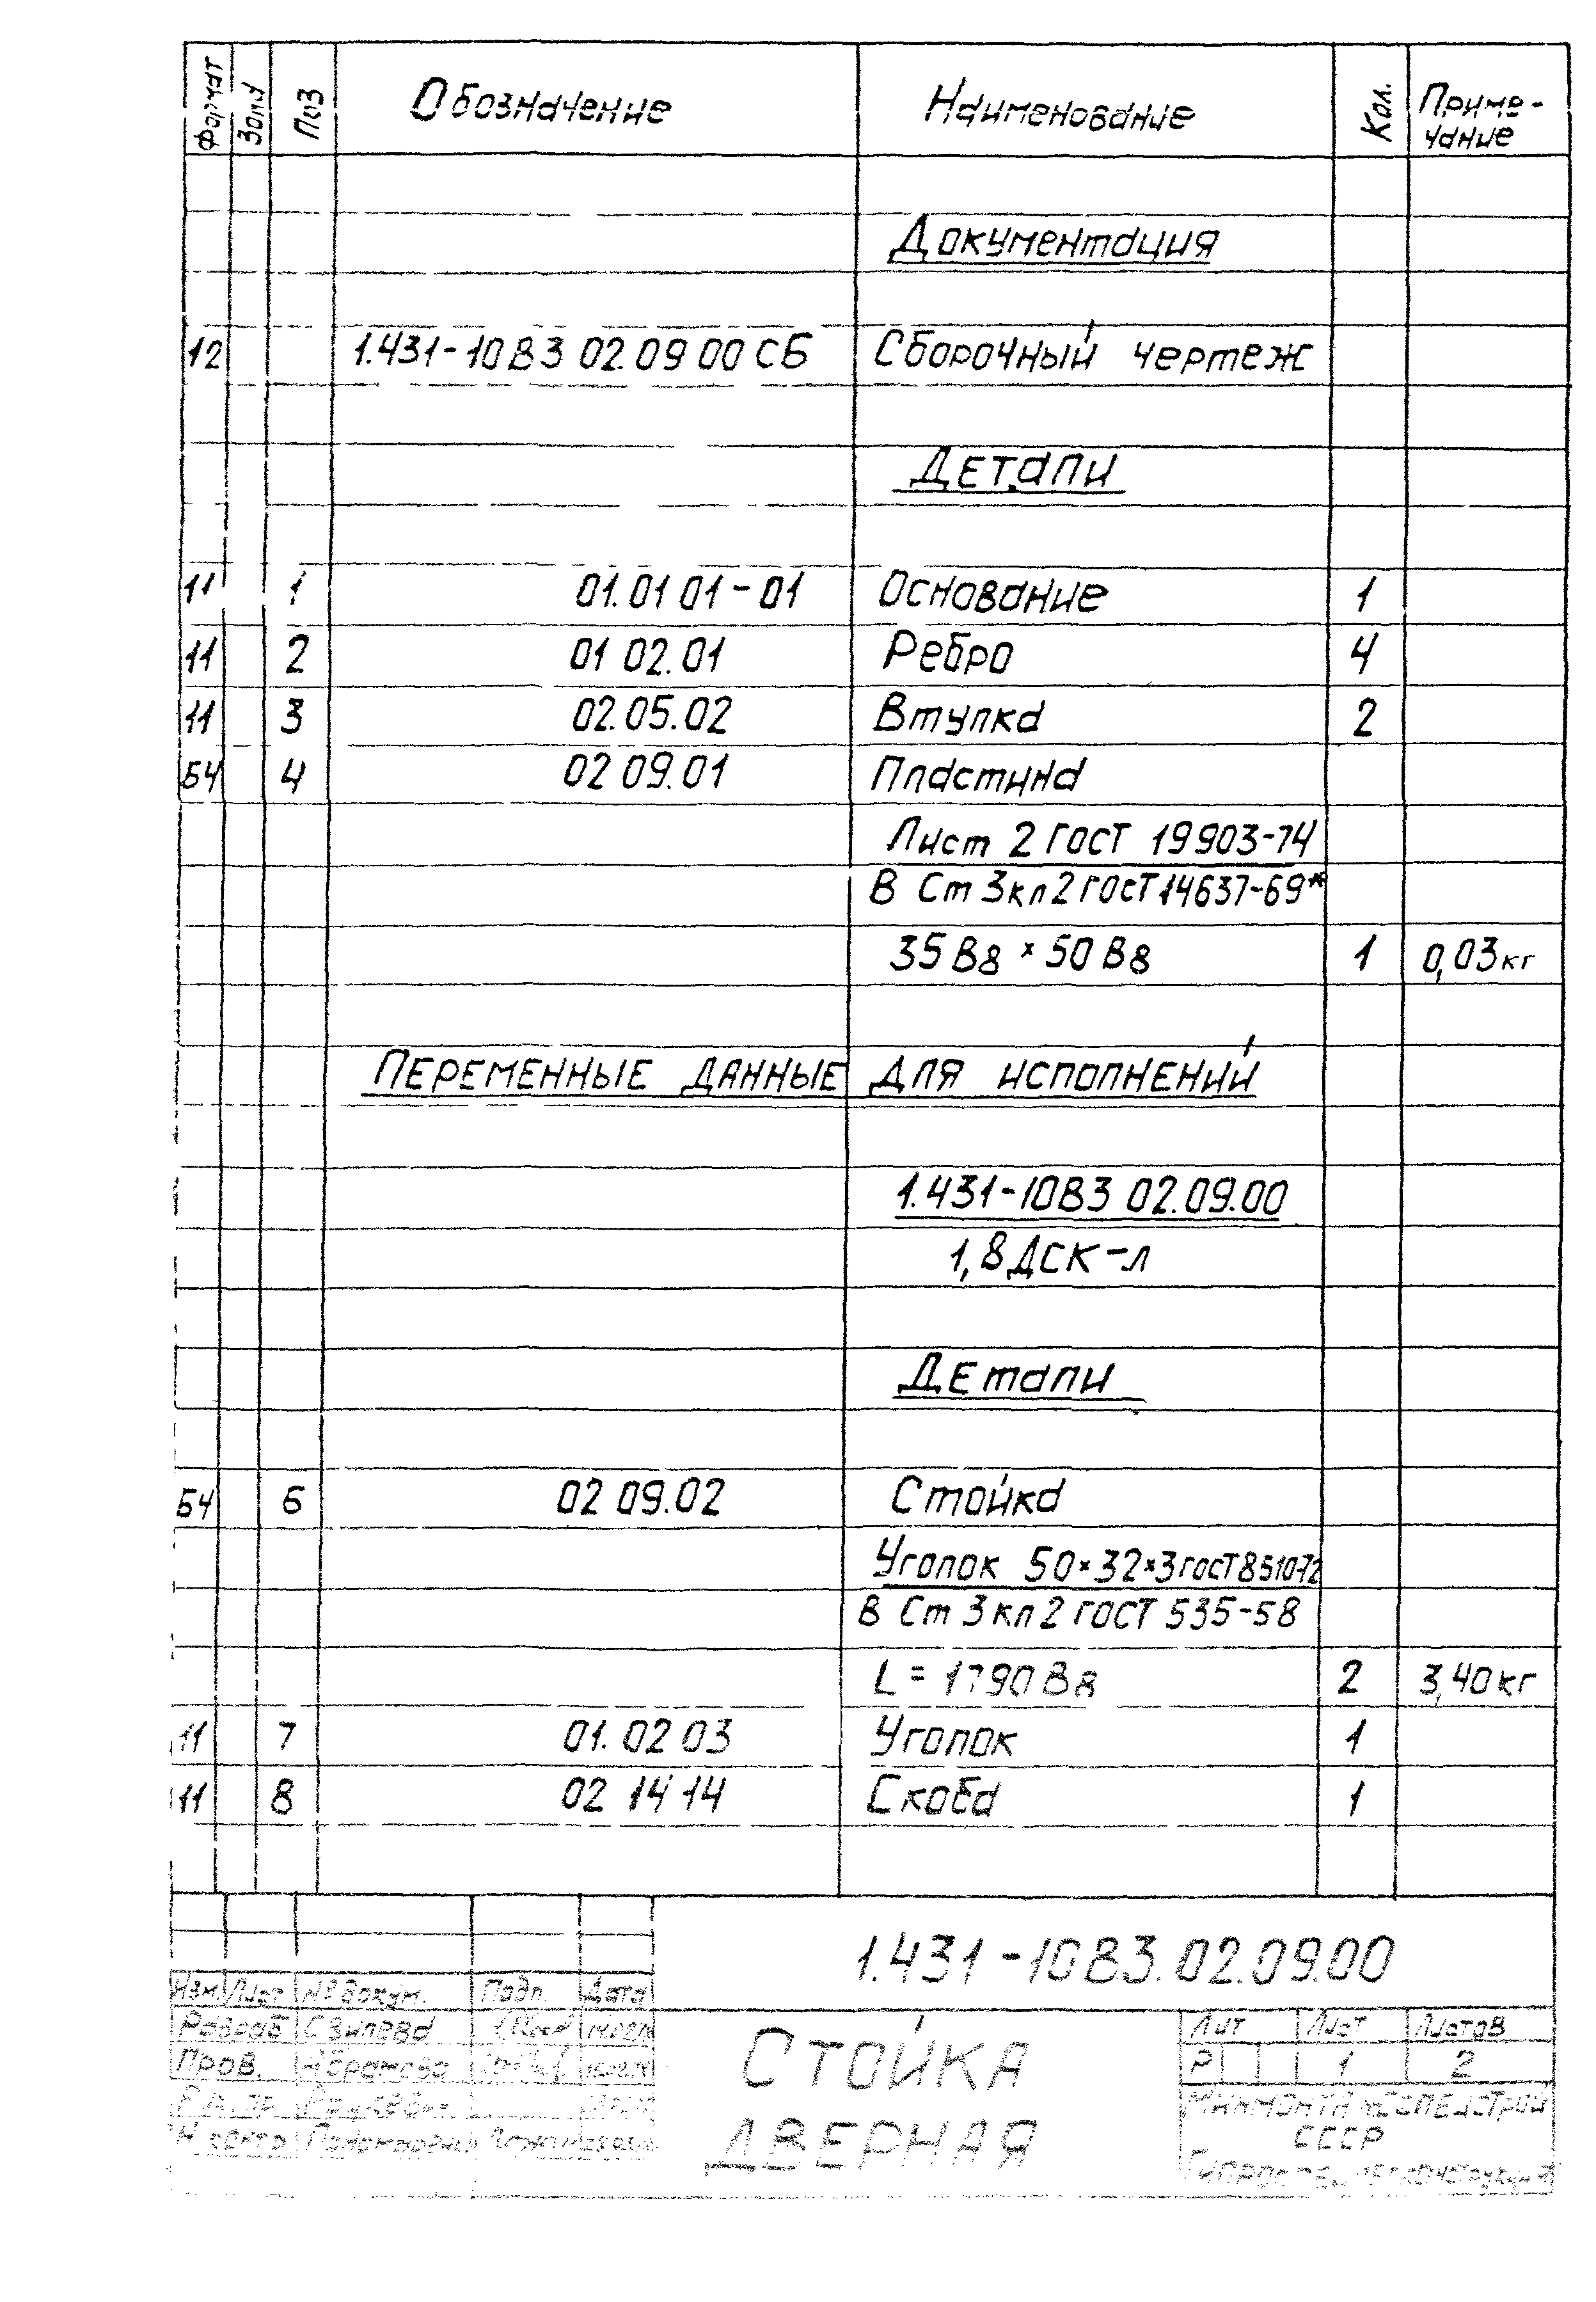 Формат Зона Поз Обозначение Наименование Кол. Приме-
чание
Документация
12 1.431-10В3 02.09 00 СБ Сборочный чертеж
Детали
11 1 01.01 01-01 Основание 1
11 2 01 02.01 Ребро 4
11 3 02.05.02 Втулка 2
БЧ 4 02 09.01 Пластина
Лист 2 ГОСТ 19903-74
В Ст 3кп2 ГОСТ 14637-69*
35 В8 × 50 В8 1 0,03кг
ПЕРЕМЕННЫЕ ДАННЫЕ ДЛЯ ИСПОЛНЕНИЙ
1.431-10В3 02.09.00
1,8ДСК-л
Детали
БЧ 6 02 09.02 Стойка
Уголок 50×32×3 ГОСТ 8510-72
В Ст 3 кп 2 ГОСТ 535-58
L = 1790 В8 2 3,40 кг
11 7 01.02 03 Уголок 1
11 8 02 14 14 Скоба 1
1.431-10В3.02.09.00
Изм Лист № докум. Подп. Дата
Разраб
Пров. Абрамова
СТОЙКА
ДВЕРНАЯ
Лит Лист Листов
Р 1 2
Минмонтажспецстрой
СССР